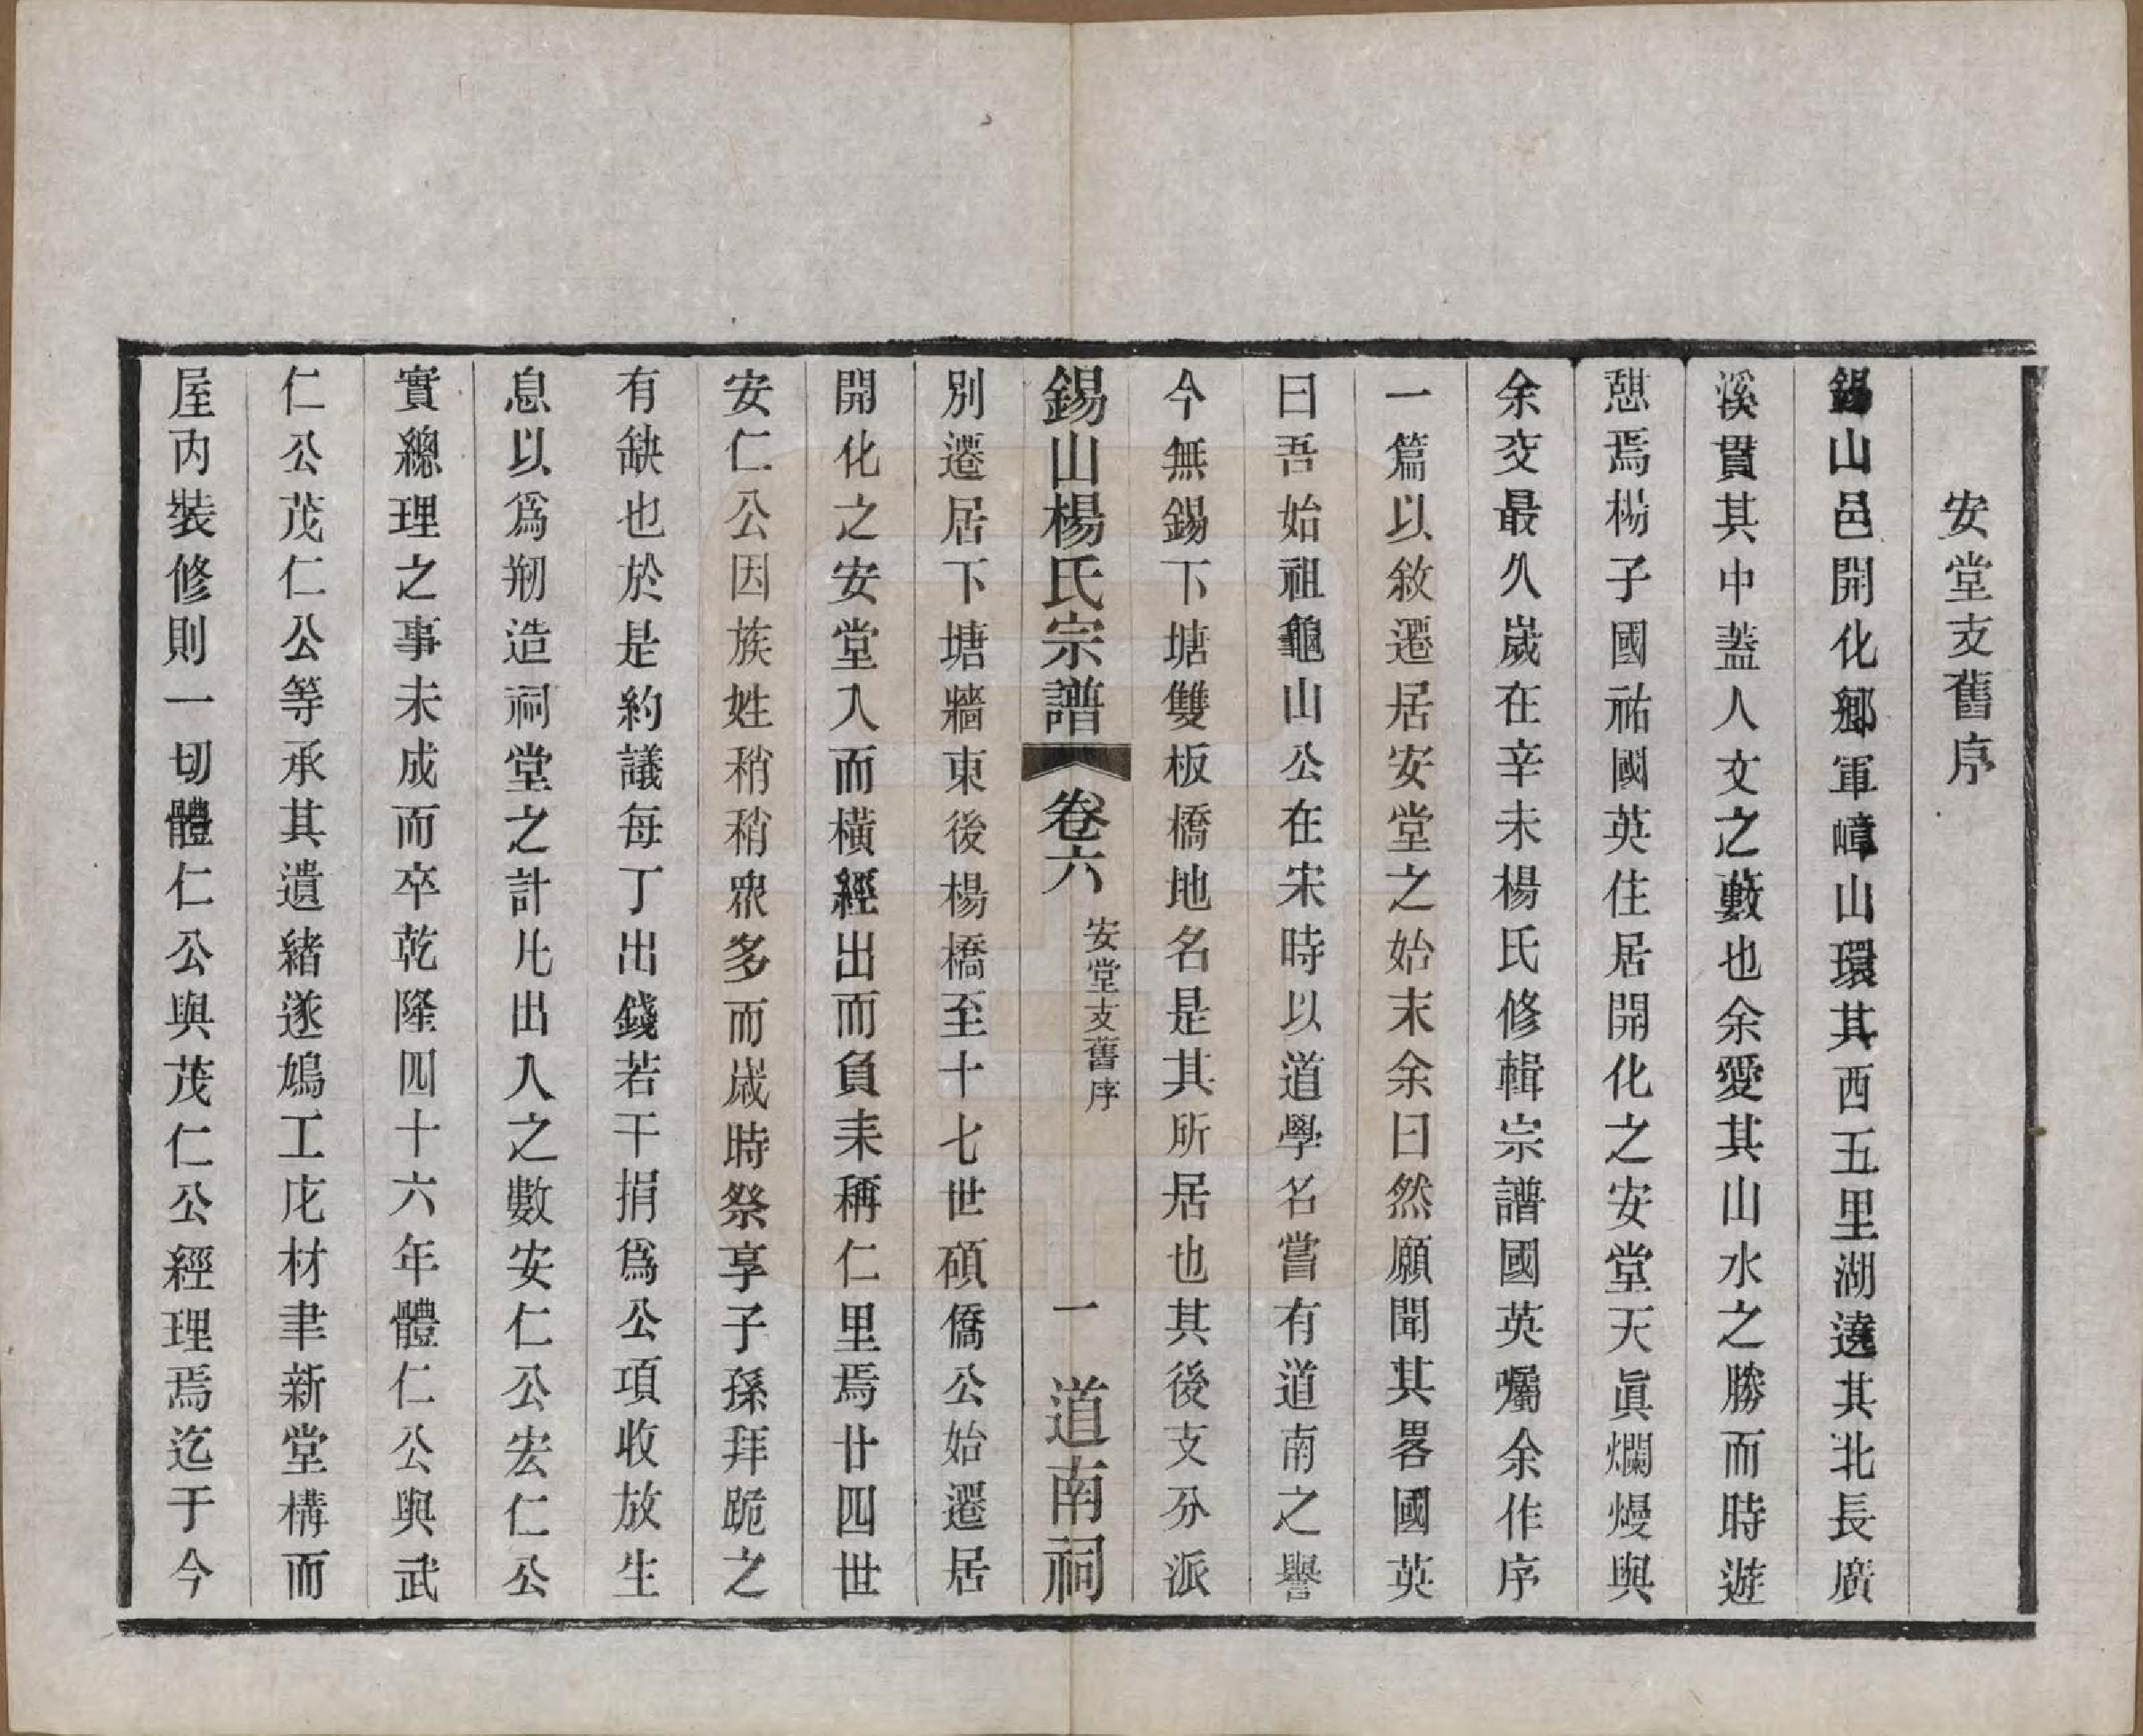 安堂支舊序
錫山邑開化鄉軍嶂山環其西五里湖遶其北長廣
溪貫其中蓋人文之藪也余愛其山水之勝而時遊
憇焉楊子國祐國英住居開化之安堂天眞爛熳與
余交最久歲在辛未楊氏修輯宗譜國英囑余作序
一篇以敘遷居安堂之始末余曰然願聞其畧國英
曰吾始祖龜山公在宋時以道學名嘗有道南之譽
今無錫下塘雙板橋地名是其所居也其後支分派
錫山楊氏宗譜 卷六 安堂支舊序 一 道南祠
別遷居下塘牆東後楊橋至十七世碩僑公始遷居
開化之安堂入而橫經出而負耒稱仁里焉廿四世
安仁公因族姓稍稍眾多而歲時祭享子孫拜跪之
有缺也於是約議每丁出錢若干捐爲公項收放生
息以爲剏造祠堂之計凡出入之數安仁公宏仁公
實總理之事未成而卒乾隆四十六年體仁公與武
仁公茂仁公等承其遺緒遂鳩工庀材聿新堂構而
屋內裝修則一切體仁公與茂仁公經理焉迄于今